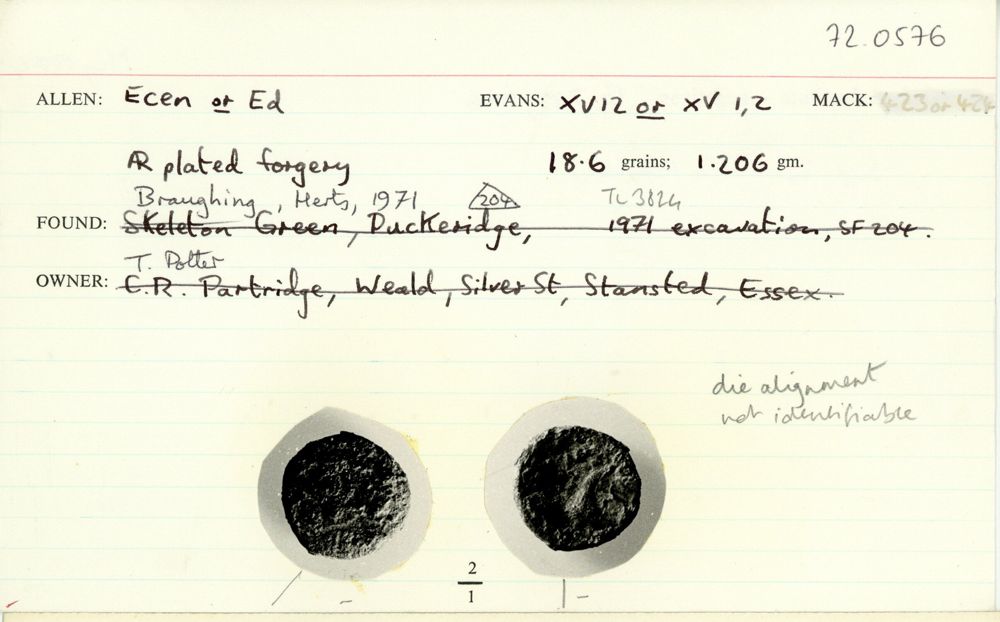 72.0576
ALLEN: Ecen or Ed EVANS: XV12 or XV 1,2 MACK: 423 or 424
AR plated forgery 18.6 grains; 1.206 gm.
Braughing, Herts, 1971 204 TL 3824
FOUND: Skeleton Green, Puckeridge, 1971 excavation, SF 204.
T. Potter
OWNER: C.R. Partridge, Weald, Silver St, Stansted, Essex.
die alignment
not identifiable
2
1